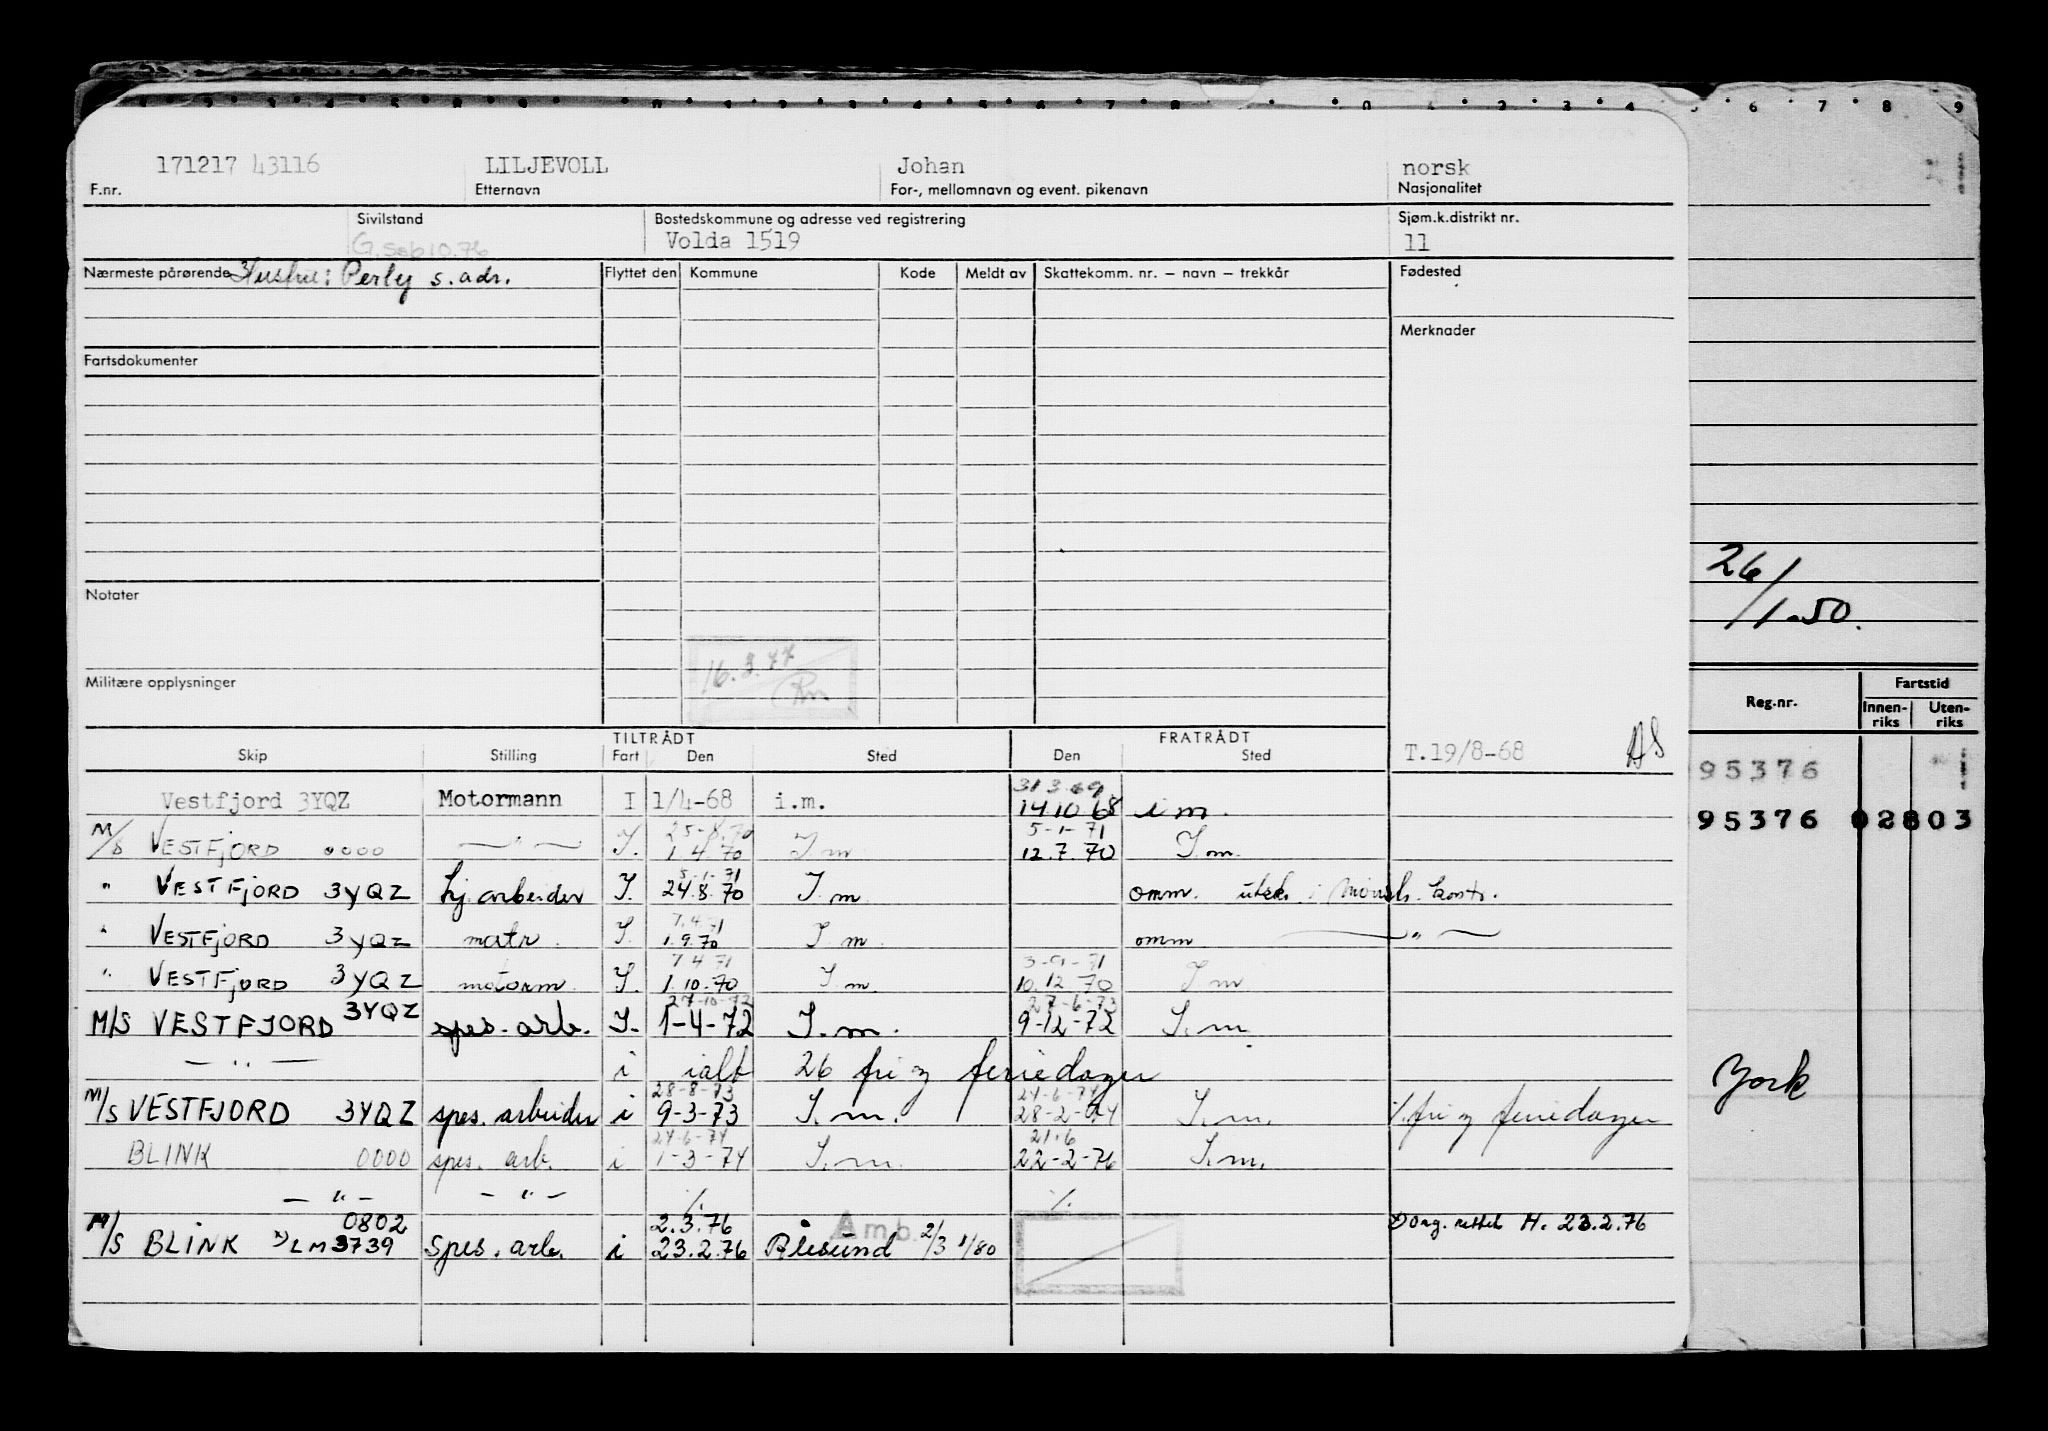 171217 43116 LILJEVOLL Johan norsk
F.nr. Etternavn For-, mellomnavn og event. pikenavn Nasjonalitet
Sivilstand Bostedskommune og adresse ved registrering Sjøm.k.distrikt nr.
Volda 1519 11
Nærmeste pårørende Hustru: Perly s. adr. Flyttet den Kommune Kode Meldt av Skattekomm. nr. – navn – trekkår Fødested
Merknader
Fartsdokumenter
26/1-50.
Notater
16.3.77
Militære opplysninger
Reg.nr. Fartstid
Innen-riks Uten-riks
TILTRÅDT FRATRÅDT
Skip Stilling Fart Den Sted Den Sted T.19/8-68 AS
95376
31 3 69
Vestfjord 3YQZ Motormann I 1/4-68 i.m. 14 10 68 i m.
95376 02803
25-8.70 5-1-71
M/S VESTFJORD 0000 — " — I. 1.4.70 I m 12.7.70 I m.
5-1-71
" VESTFJORD 3YQZ hj. arbeider I. 24.8.70 I. m omm. utsk. i mønstr. kontr.
7.4 71
" VESTFJORD 3YQZ matr. I. 1.9.70 I m. omm — " —
7 4 71 3-9-71
" VESTFJORD 3YQZ motorm I. 1.10.70 I.m. 10.12.70 I m
27-10-72 27-6-73
M/S VESTFJORD 3YQZ spes. arb. I. 1-4-72 I. m. 9-12-72 I. m.
— " — i ialt 26 fri og feriedager
York
28-8-73 24-6-74
M/S VESTFJORD 3YQZ spes. arbeider i 9-3-73 I. m. 28-2-74 I. m. %. fri og feriedager
24-6-74 21.6
BLINK 0000 spes. arb. i 1-3-74 I. m. 22-2-76 I. m.
— " — — " — %. %.
0802 2.3.76 Amb.
M/S BLINK x) LM 3739 spes. arb. i 23.2.76 Ålesund 2/3 1/80 x) org. rettet H. 23.2.76